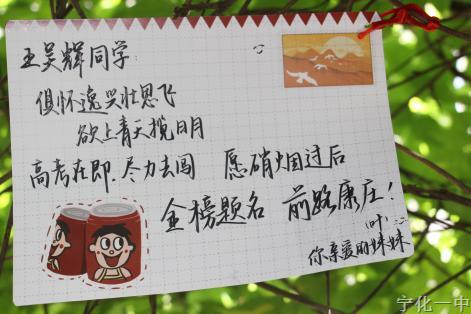 王吴辉同学:
俱怀逸兴壮思飞
欲上青天揽日月
高考在即.尽力去闯 愿硝烟过后
金榜题名 前路康庄!
(叶)
你亲爱的妹妹
宁化一中